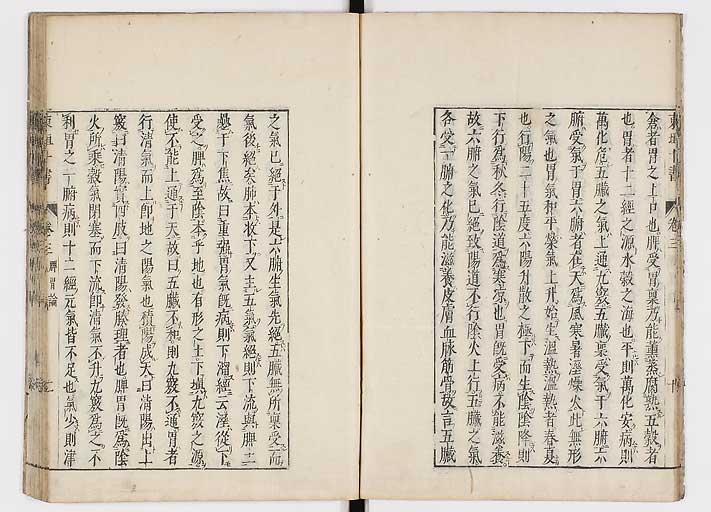 倉者胃之上口也脾受胃稟乃能薫蒸腐熟五穀者
也胃者十二經之源水穀之海也平則萬化安病則
萬化危五臟之氣上通九竅五臟稟受氣于六腑六
腑受氣于胃六腑者在天爲風寒暑溼燥火此無形
之氣也胃氣和平榮氣上升始生溫熱溫熱者春夏
也行陽二十五度六陽升散之極下而生陰陰降則
下行爲秋冬行陰道爲寒凉也胃既受病不能滋養
故六腑之氣已絶致陽道不行陰火上行五臟之氣
各受一腑之化乃能滋養皮膚血脉筋骨故言五臟
之氣已絶于外是六腑生氣先絶五臟無所稟受而
氣後絶矣肺本收下又主五氣氣絶則下流與脾土
疊于下焦故曰重強胃氣既病則下溜經云溼從下
受之脾爲至陰本乎地也有形之土下塡九竅之源
使不能上通于天故曰五臟不和則九竅不通胃者
行清氣而上即地之陽氣也積陽成天曰清陽出上
竅曰清陽實四肢曰清陽發腠理者也脾胃既爲陰
火所乘穀氣閉塞而下流即清氣不升九竅爲之不
利胃之一腑病則十二經元氣皆不足也氣少則津
東垣十書
卷三
脾胃論